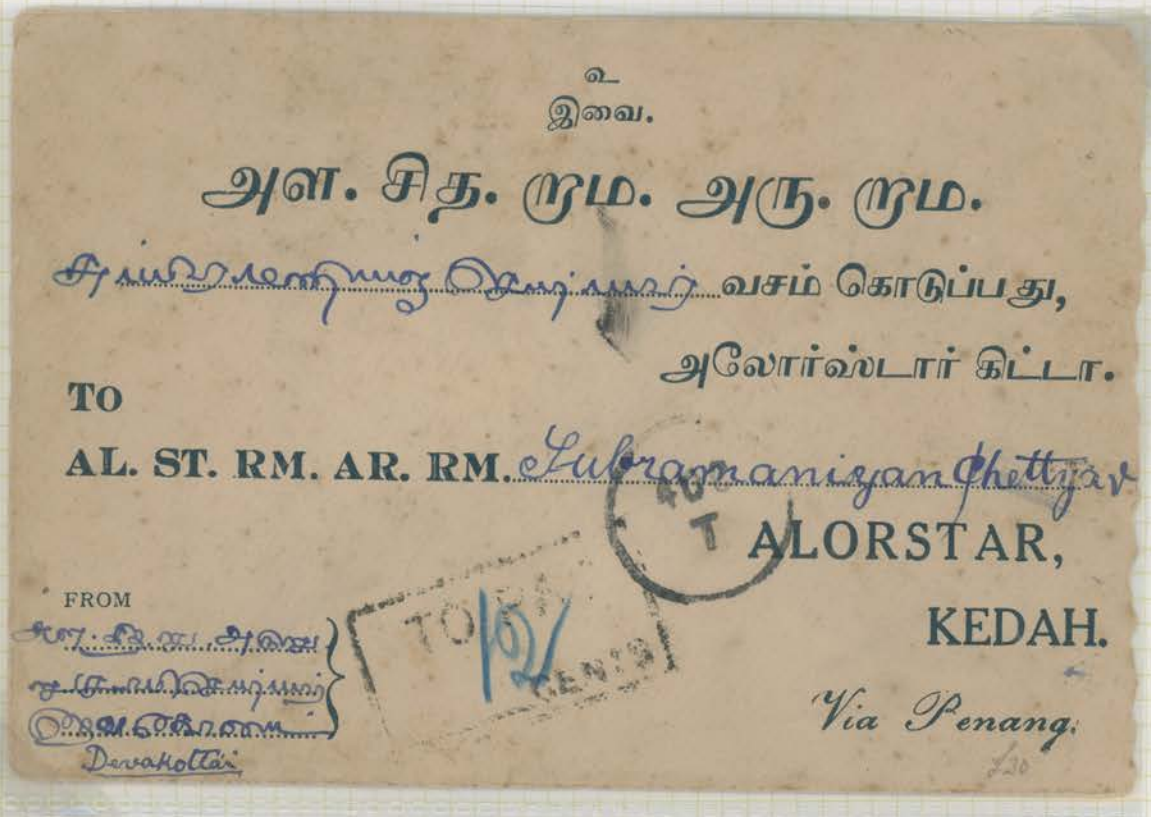 உ
இவை.
அள. சித. ரும. அரு. ரும.
சுப்பிரமணியஞ் செட்டியார் வசம் கொடுப்பது,
அலோர்ஸ்டார் கிட்டா.
TO
AL. ST. RM. AR. RM. Subramaniyan Chettyar
ALORSTAR,
KEDAH.
Via Penang.
FROM
தேவகோட்டை
Devakottai
TO PA
12
CENTS
T
£30